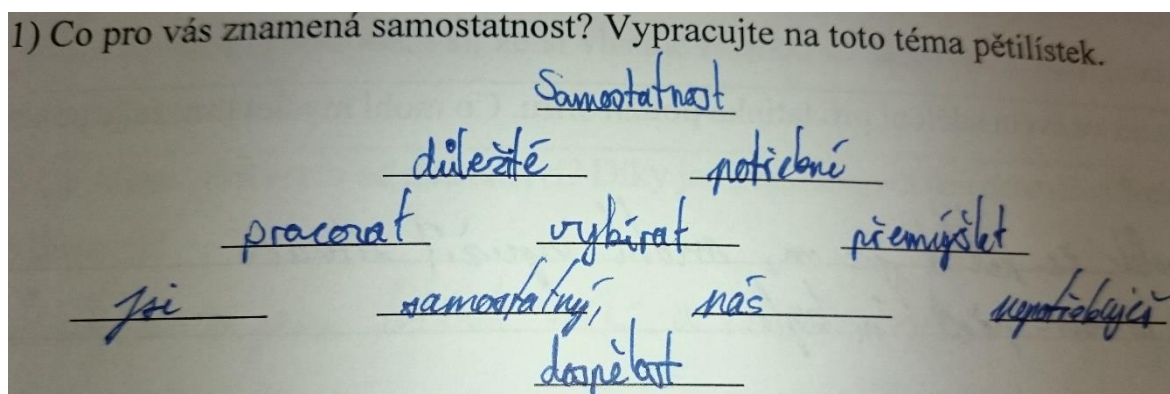 1) Co pro vás znamená samostatnost? Vypracujte na toto téma pětilístek.
Samostatnost
důležité potřebné
pracovat vybírat přemýšlet
jsi samostatný, nás nepotřebuješ
dospělost